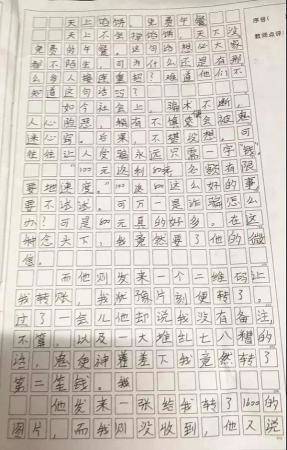 序号（
教师点评
天上馅饼，免费午餐
天上不会掉馅饼，天下没
免费的午餐。这句话想必大家
都不陌生，可为什么还是有那
么多人接连重蹈？难道他们不
知道这句话吗？
如今社会上，骗术不断，
人心险恶，稍有不慎变会被鬼
迷心窍。后果，不堪设想。可
往往让人受骗永远只需一字“钱”
“100元返利500元，名额有限，
要地速度。”100返500这么好的事，
要不试试。可万一是诈骗怎么
办？可是500元真的好多。在这
种念天下，我竟然要了他的微
信。
而他则发来一个二维码让
我转账，我犹豫片刻便转了。
过了一会儿他却说我没有备注，
不算。以及一大堆乱七八糟的
话，鬼使神差差下我竟然转了
第二笔钱。我
他发来一张给我转了1600的
图片，而我则没收到，他又说